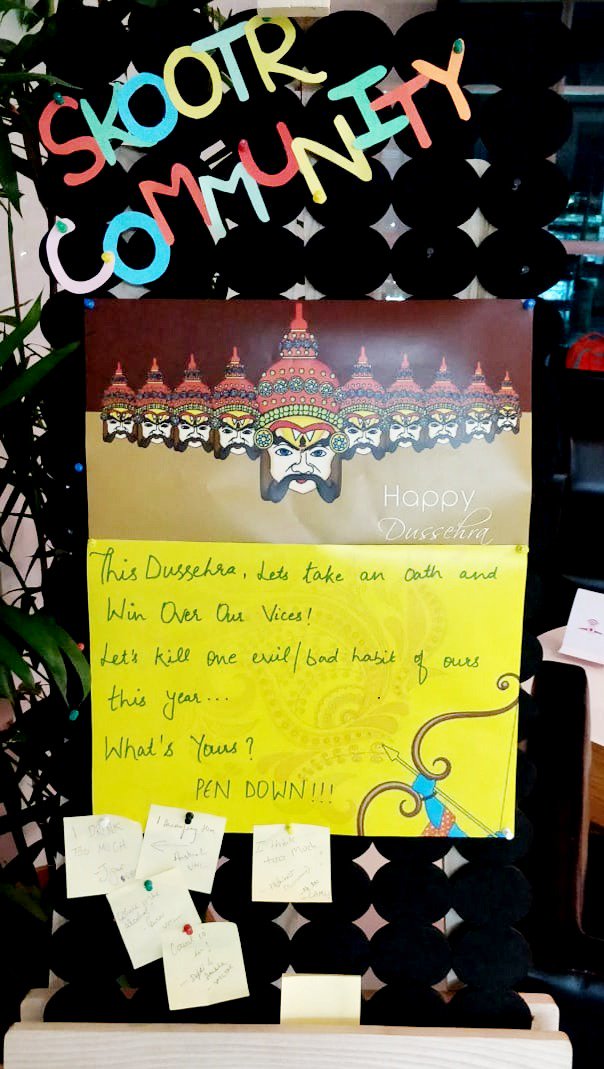 SKOOTR
COMMUNITY
Happy
Dussehra
This Dussehra, Lets take an oath and
Win Over Our Vices!
Let's kill one evil/bad habit of ours
this year...
What's Yours?
PEN DOWN!!!
I DRINK
TOO MUCH
I think
too Much